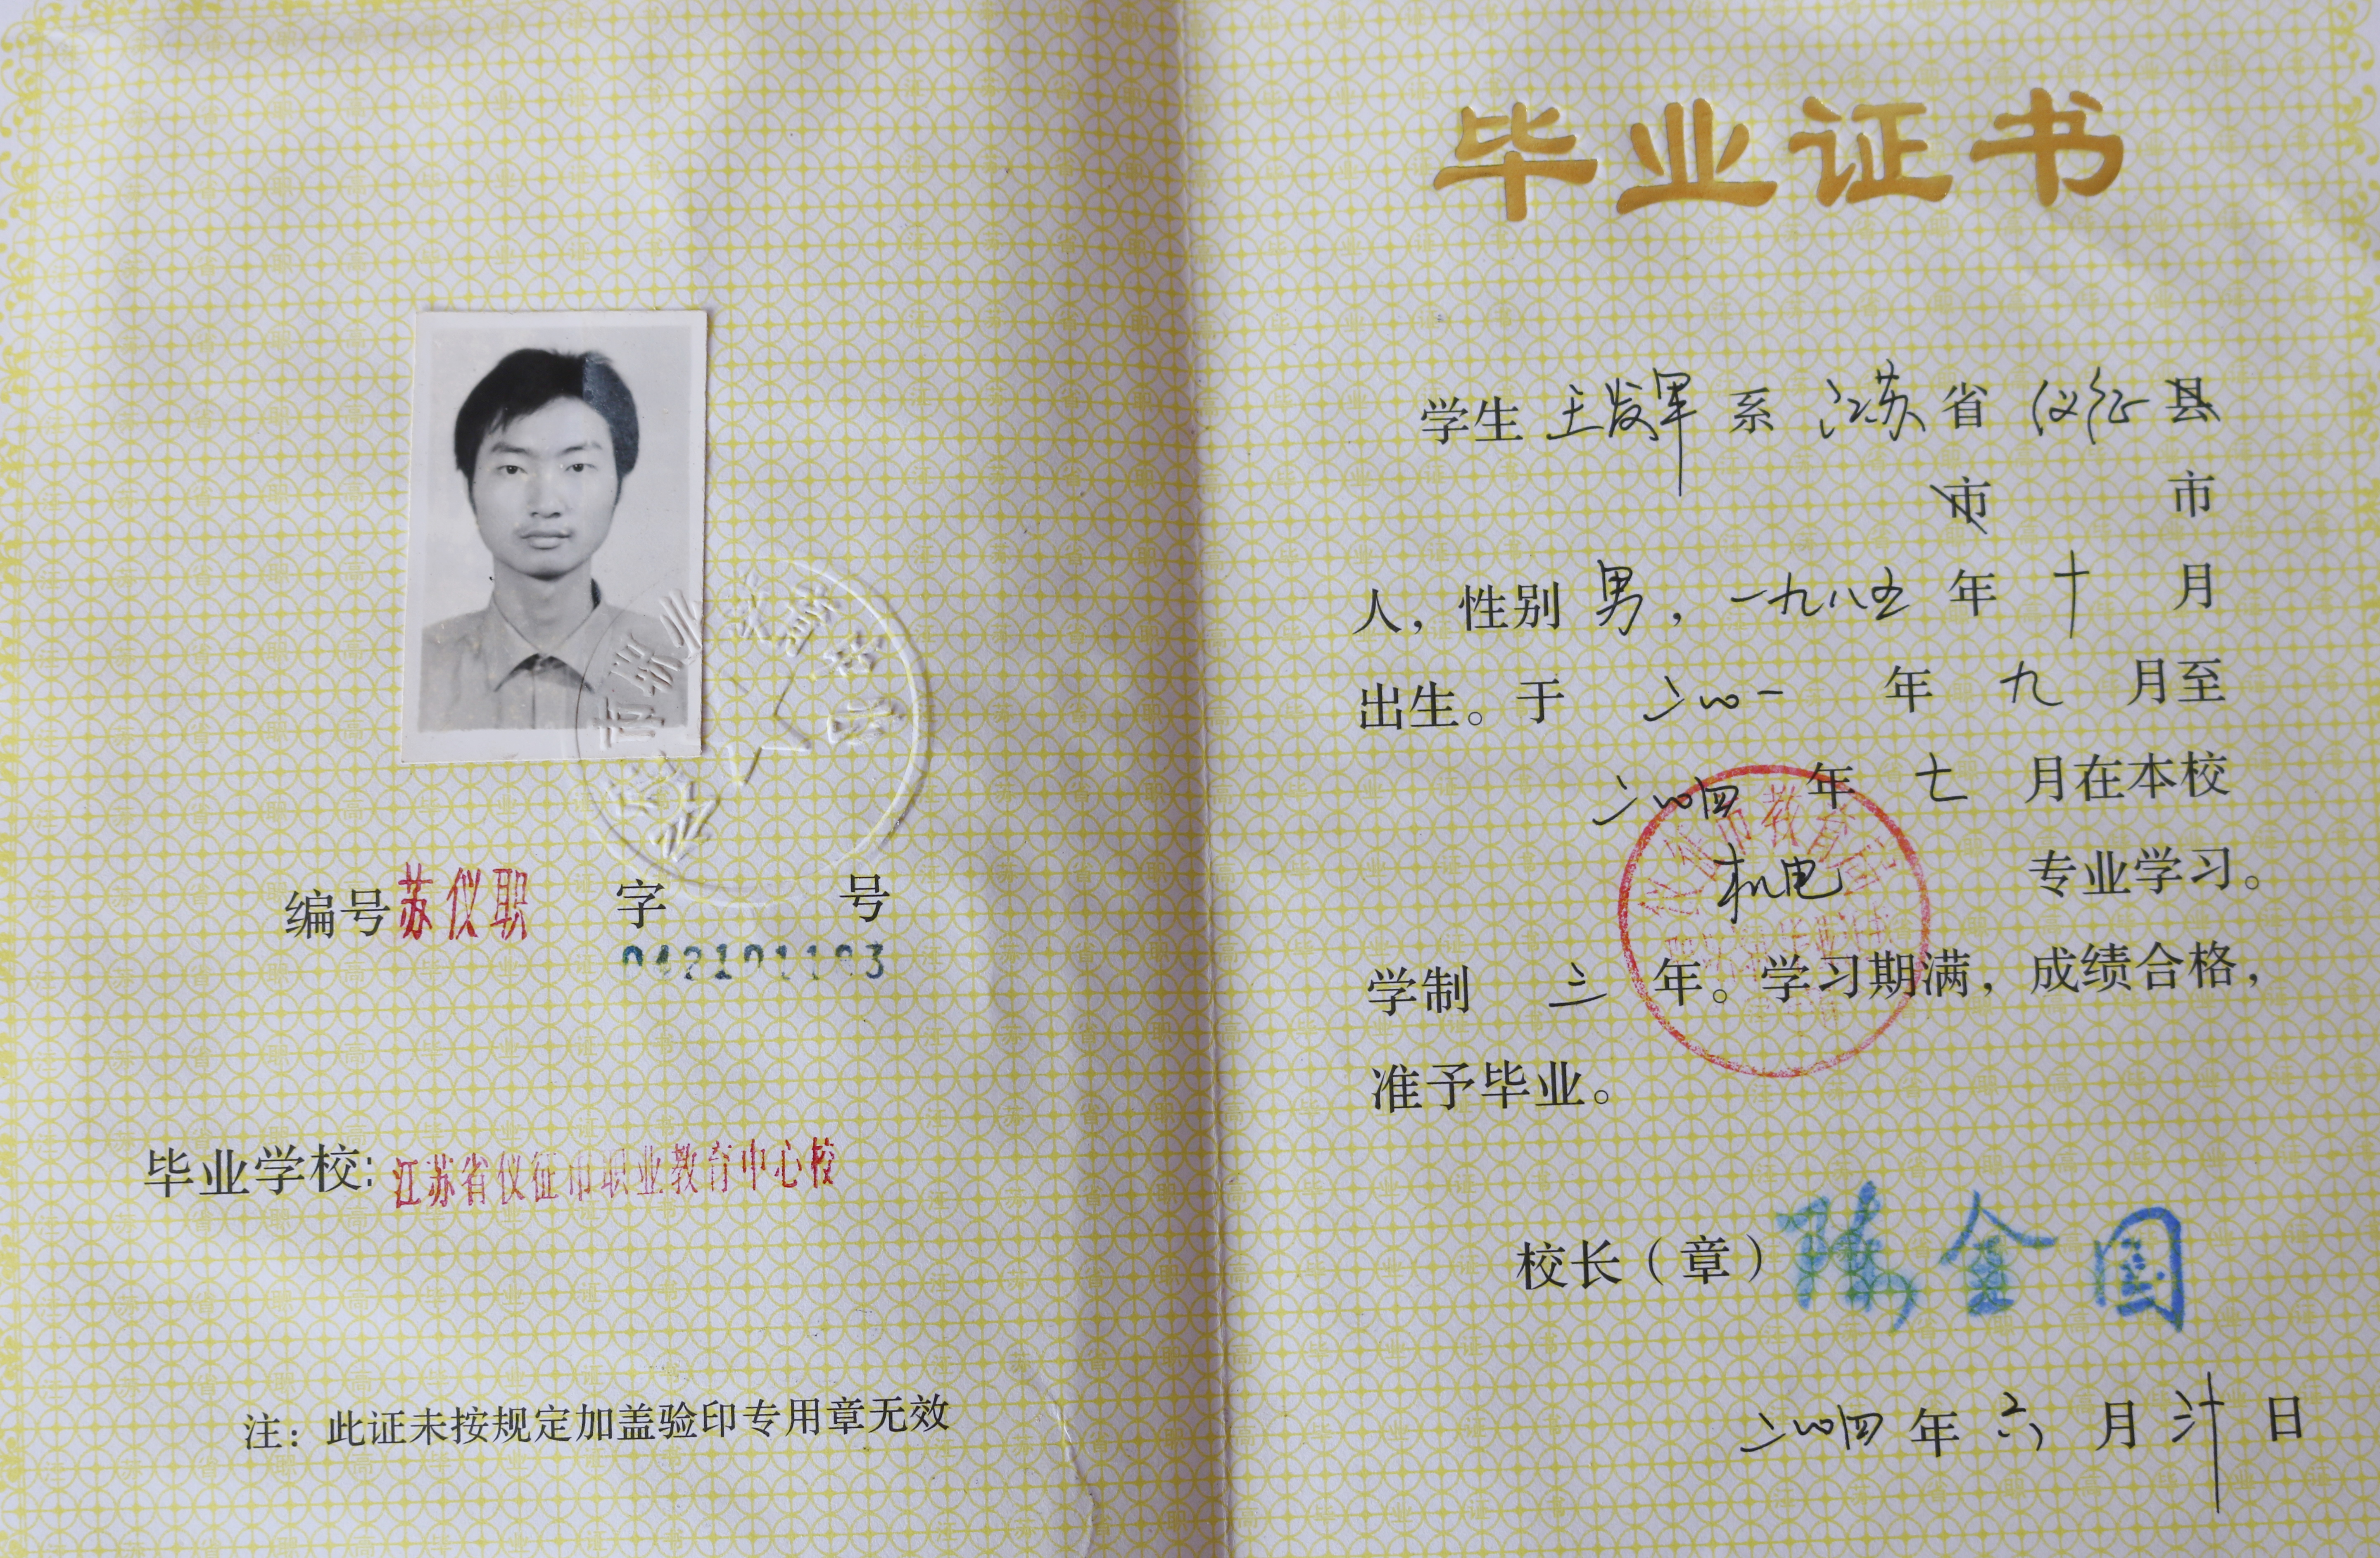 编号苏仪职 字 号
042101103
毕业学校:江苏省仪征市职业教育中心校
注：此证未按规定加盖验印专用章无效
毕业证书
学生 王发军 系 江苏 省 仪征 县
市 市
人，性别 男，一九八五 年 十 月
出生。于 二〇〇一 年 九 月至
二〇〇四 年 七 月在本校
机电 专业学习。
学制 三 年。学习期满，成绩合格，
准予毕业。
仪征市教育局
校长（章）陈金国
二〇〇四 年 六 月 三十 日